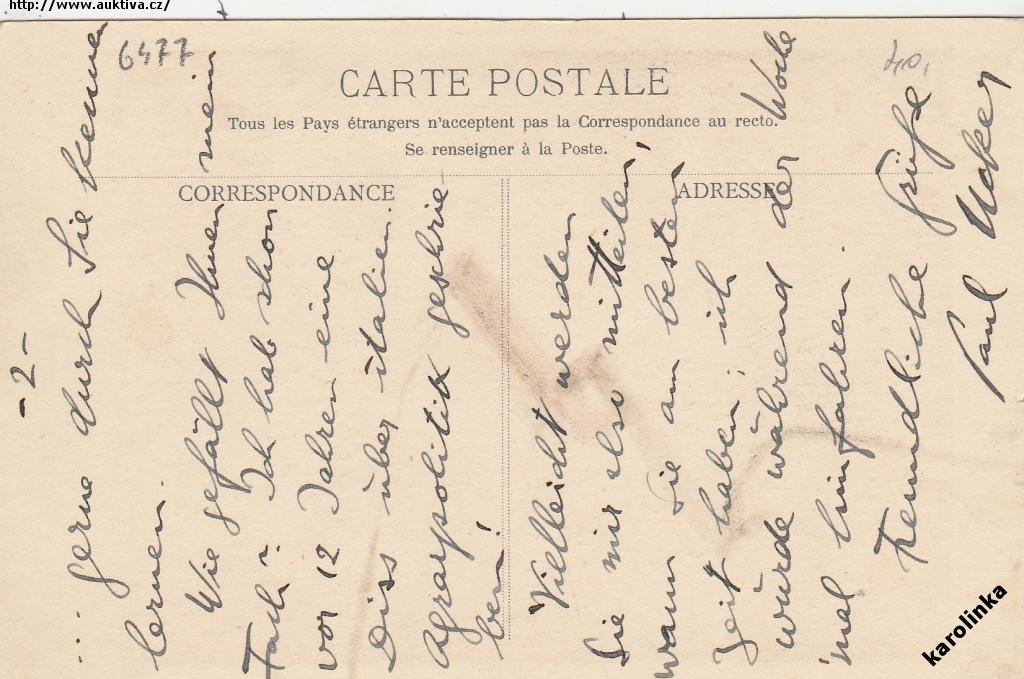 http://www.auktiva.cz/
6477
40,
CARTE POSTALE
Tous les Pays étrangers n'acceptent pas la Correspondance au recto.
Se renseigner à la Poste.
CORRESPONDANCE
ADRESSE
- 2 -
... gerne durch Sie kennen
lernen.
Wie gefällt Ihnen mein
Fach? Ich hab schon
vor 12 Jahren eine
Diss über italien.
Agrarpolitik geschrie-
ben!
Vielleicht werden
Sie mir also mitteilen,
wann Sie am besten
Zeit haben; ich
würde während der Woche
mal hinfahren.
Freundliche Grüße
Paul
karolinka